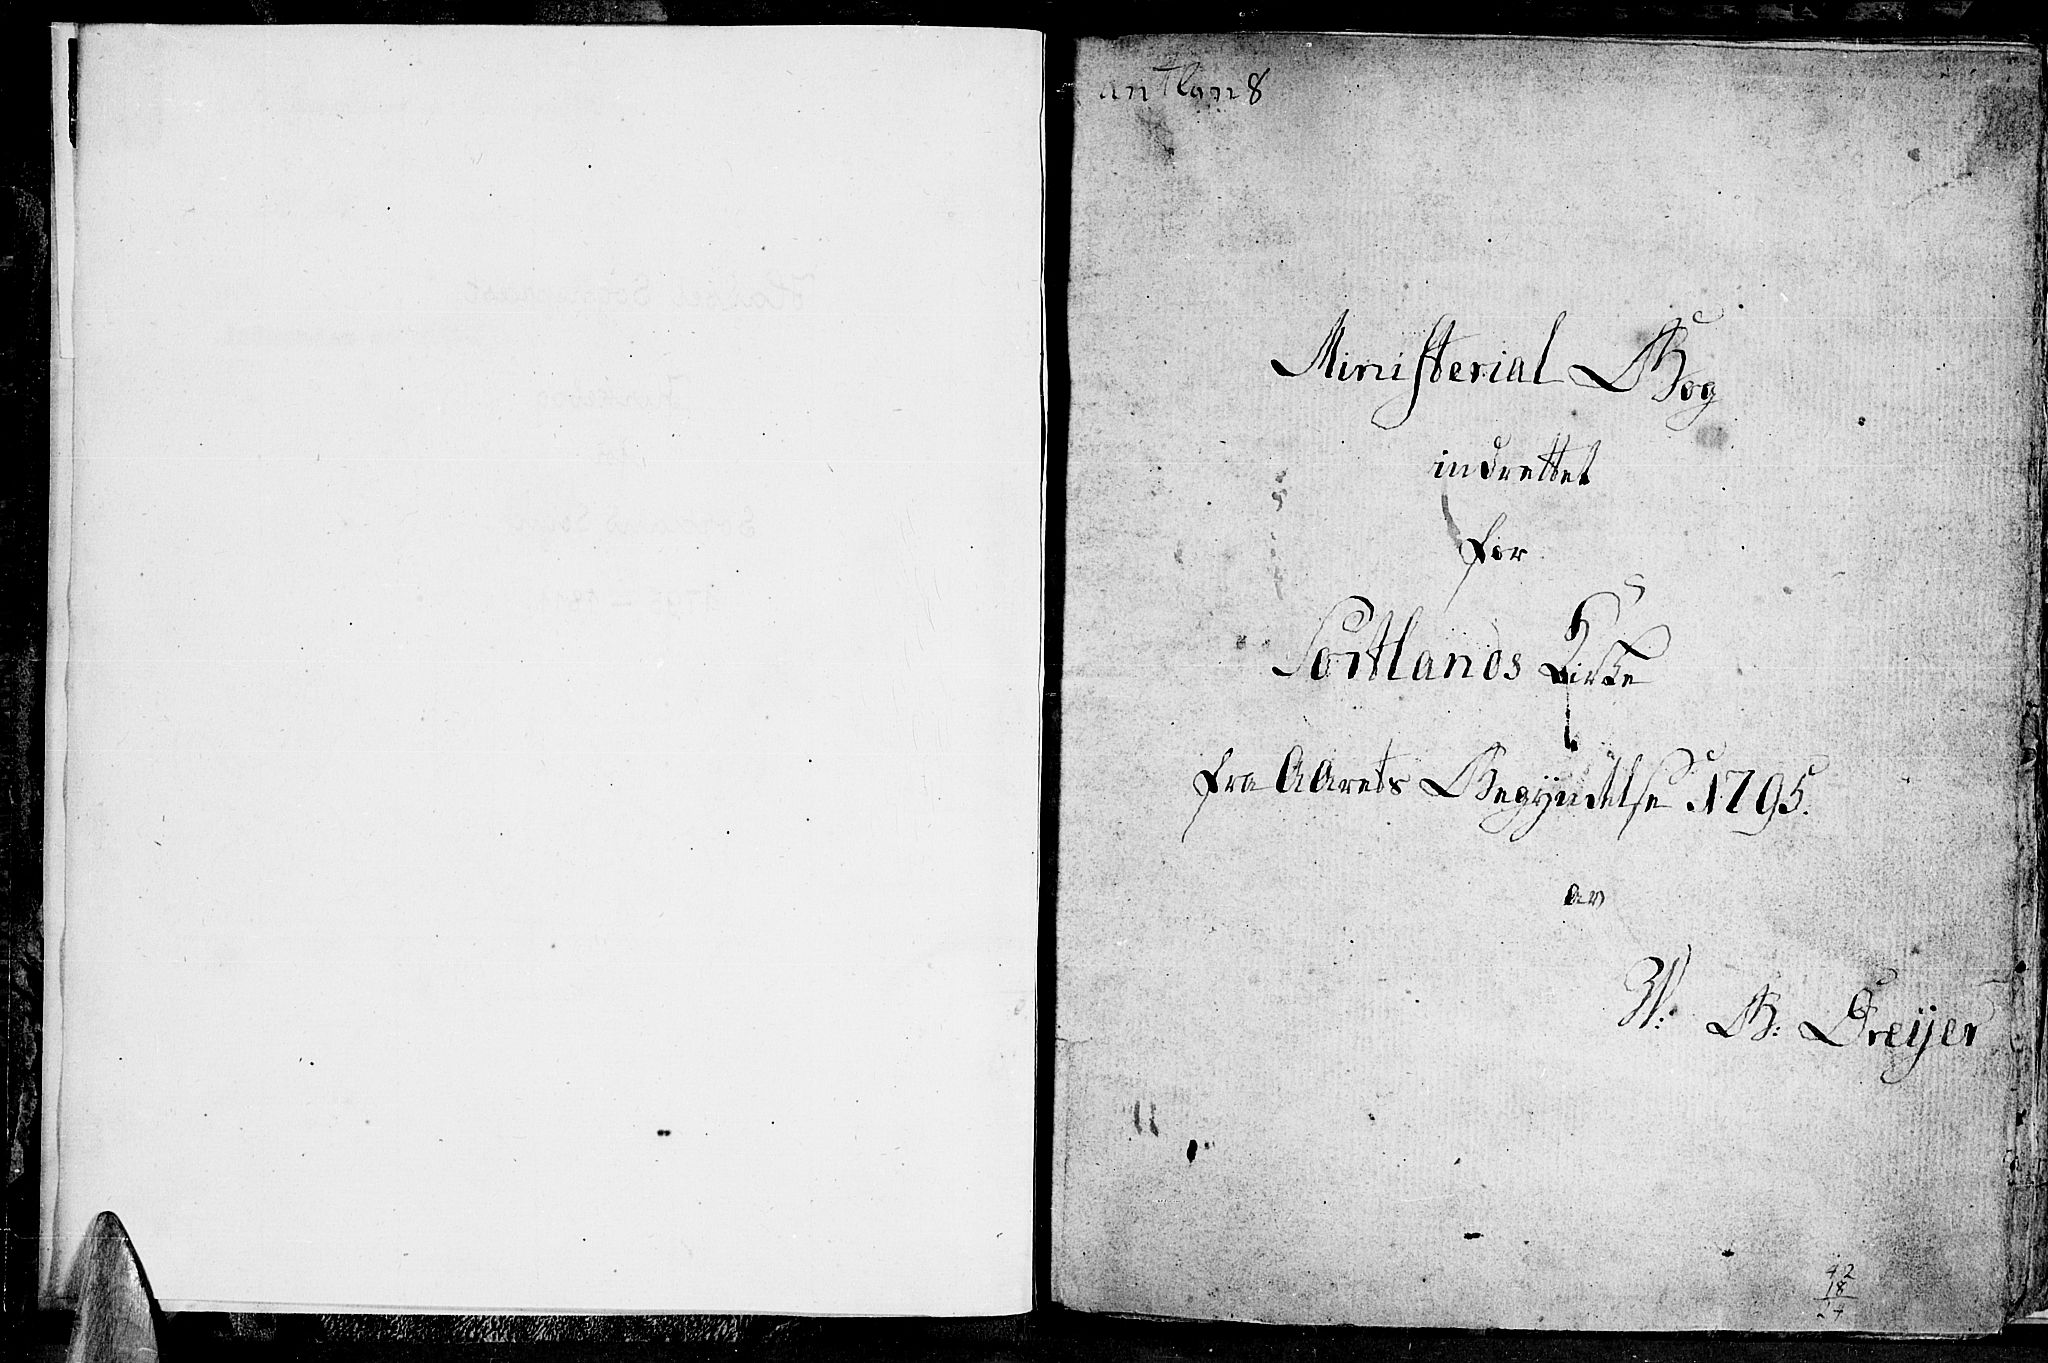 Ministerial Bog
indrettet
for
Sortlands Kirke
fra Aarets Begyndelse 1795.
av
W: B: Dreyer
42
18
24